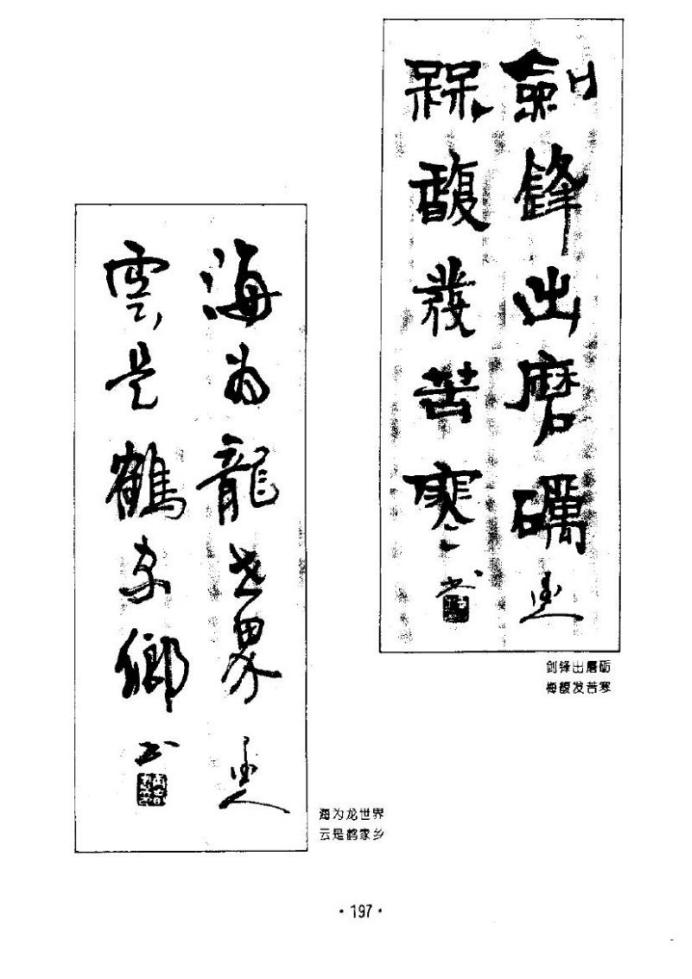 劍鋒出磨礪
槑馥發苦寒 书
剑锋出磨砺
梅馥发苦寒
海为龍世界
雲是鶴家鄉 书
海为龙世界
云是鹤家乡
·197·